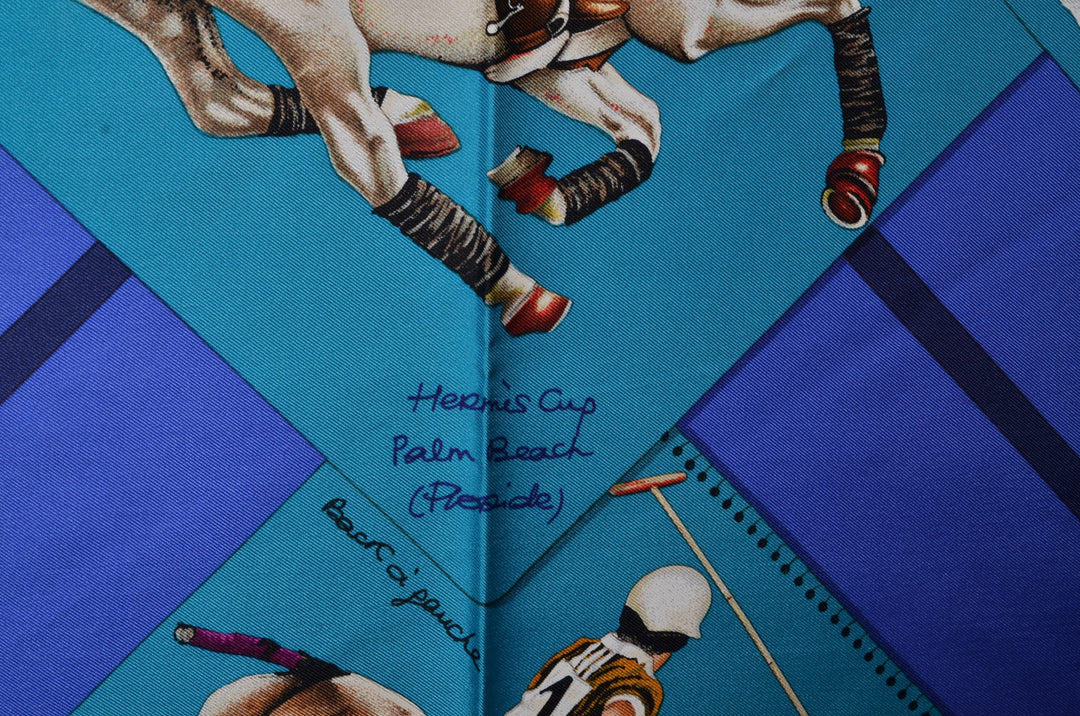 Hermès Cup
Palm Beach
(Presside)
Back à gauche
1